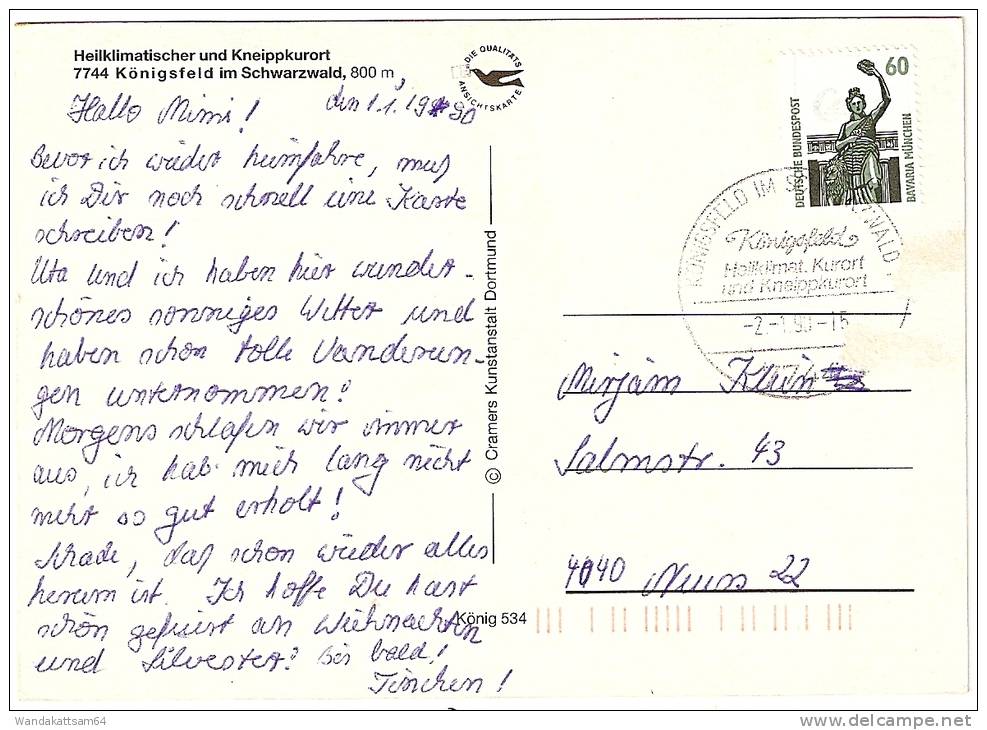 Heilklimatischer und Kneippkurort
7744 Königsfeld im Schwarzwald, 800 m
DIE QUALITÄTS
ANSICHTSKARTE
Hallo Mimi!
den 1.1.1990
Bevor ich wieder heimfahre, muß
ich Dir noch schnell eine Karte
schreiben!
Uta und ich haben hier wunder-
schönes sonniges Wetter und
haben schon tolle Wanderun-
gen unternommen!
Morgens schlafen wir immer
aus, ich hab mich lang nicht
mehr so gut erholt!
Schade, daß schon wieder alles
herum ist. Ich hoffe Du hast
schön gefeiert an Weihnachten
und Silvester? Bis bald!
Tinchen!
© Cramers Kunstanstalt Dortmund
König 534
60
DEUTSCHE BUNDESPOST
BAVARIA MÜNCHEN
KÖNIGSFELD IM SCHWARZWALD
Königsfeld
Heilklimat. Kurort
und Kneippkurort
-2.-1.90-15
Mirjam Klein
Salmstr. 43
4040 Neuss 22
Wandakattsam64
www.delcampe.net